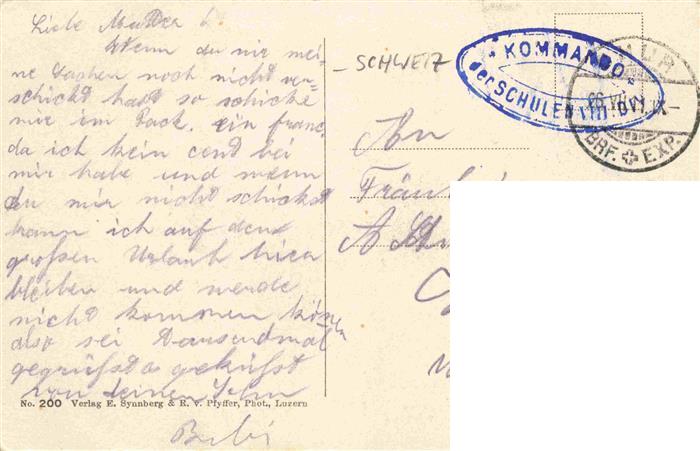 Liebe Mutter
Wenn du mir mei-
ne Sachen noch nicht ver-
schickt hast so schicke
mir im Pack. ein franc.
da ich kein cent bei
mir habe und wenn
du mir nicht schickst
kann ich auf den
großen Urlaub hier
bleiben und werde
nicht kommen können
also sei Tausendmal
gegrüsst & geküsst
von deinem Sohn
Bubi
No. 200 Verlag E. Synnberg & R. v. Pfyffer, Phot., Luzern
– SCHWEIZ
KOMMANDO
der SCHULEN VIII. DIV.
BRF. EXP.
An
Fräul
A